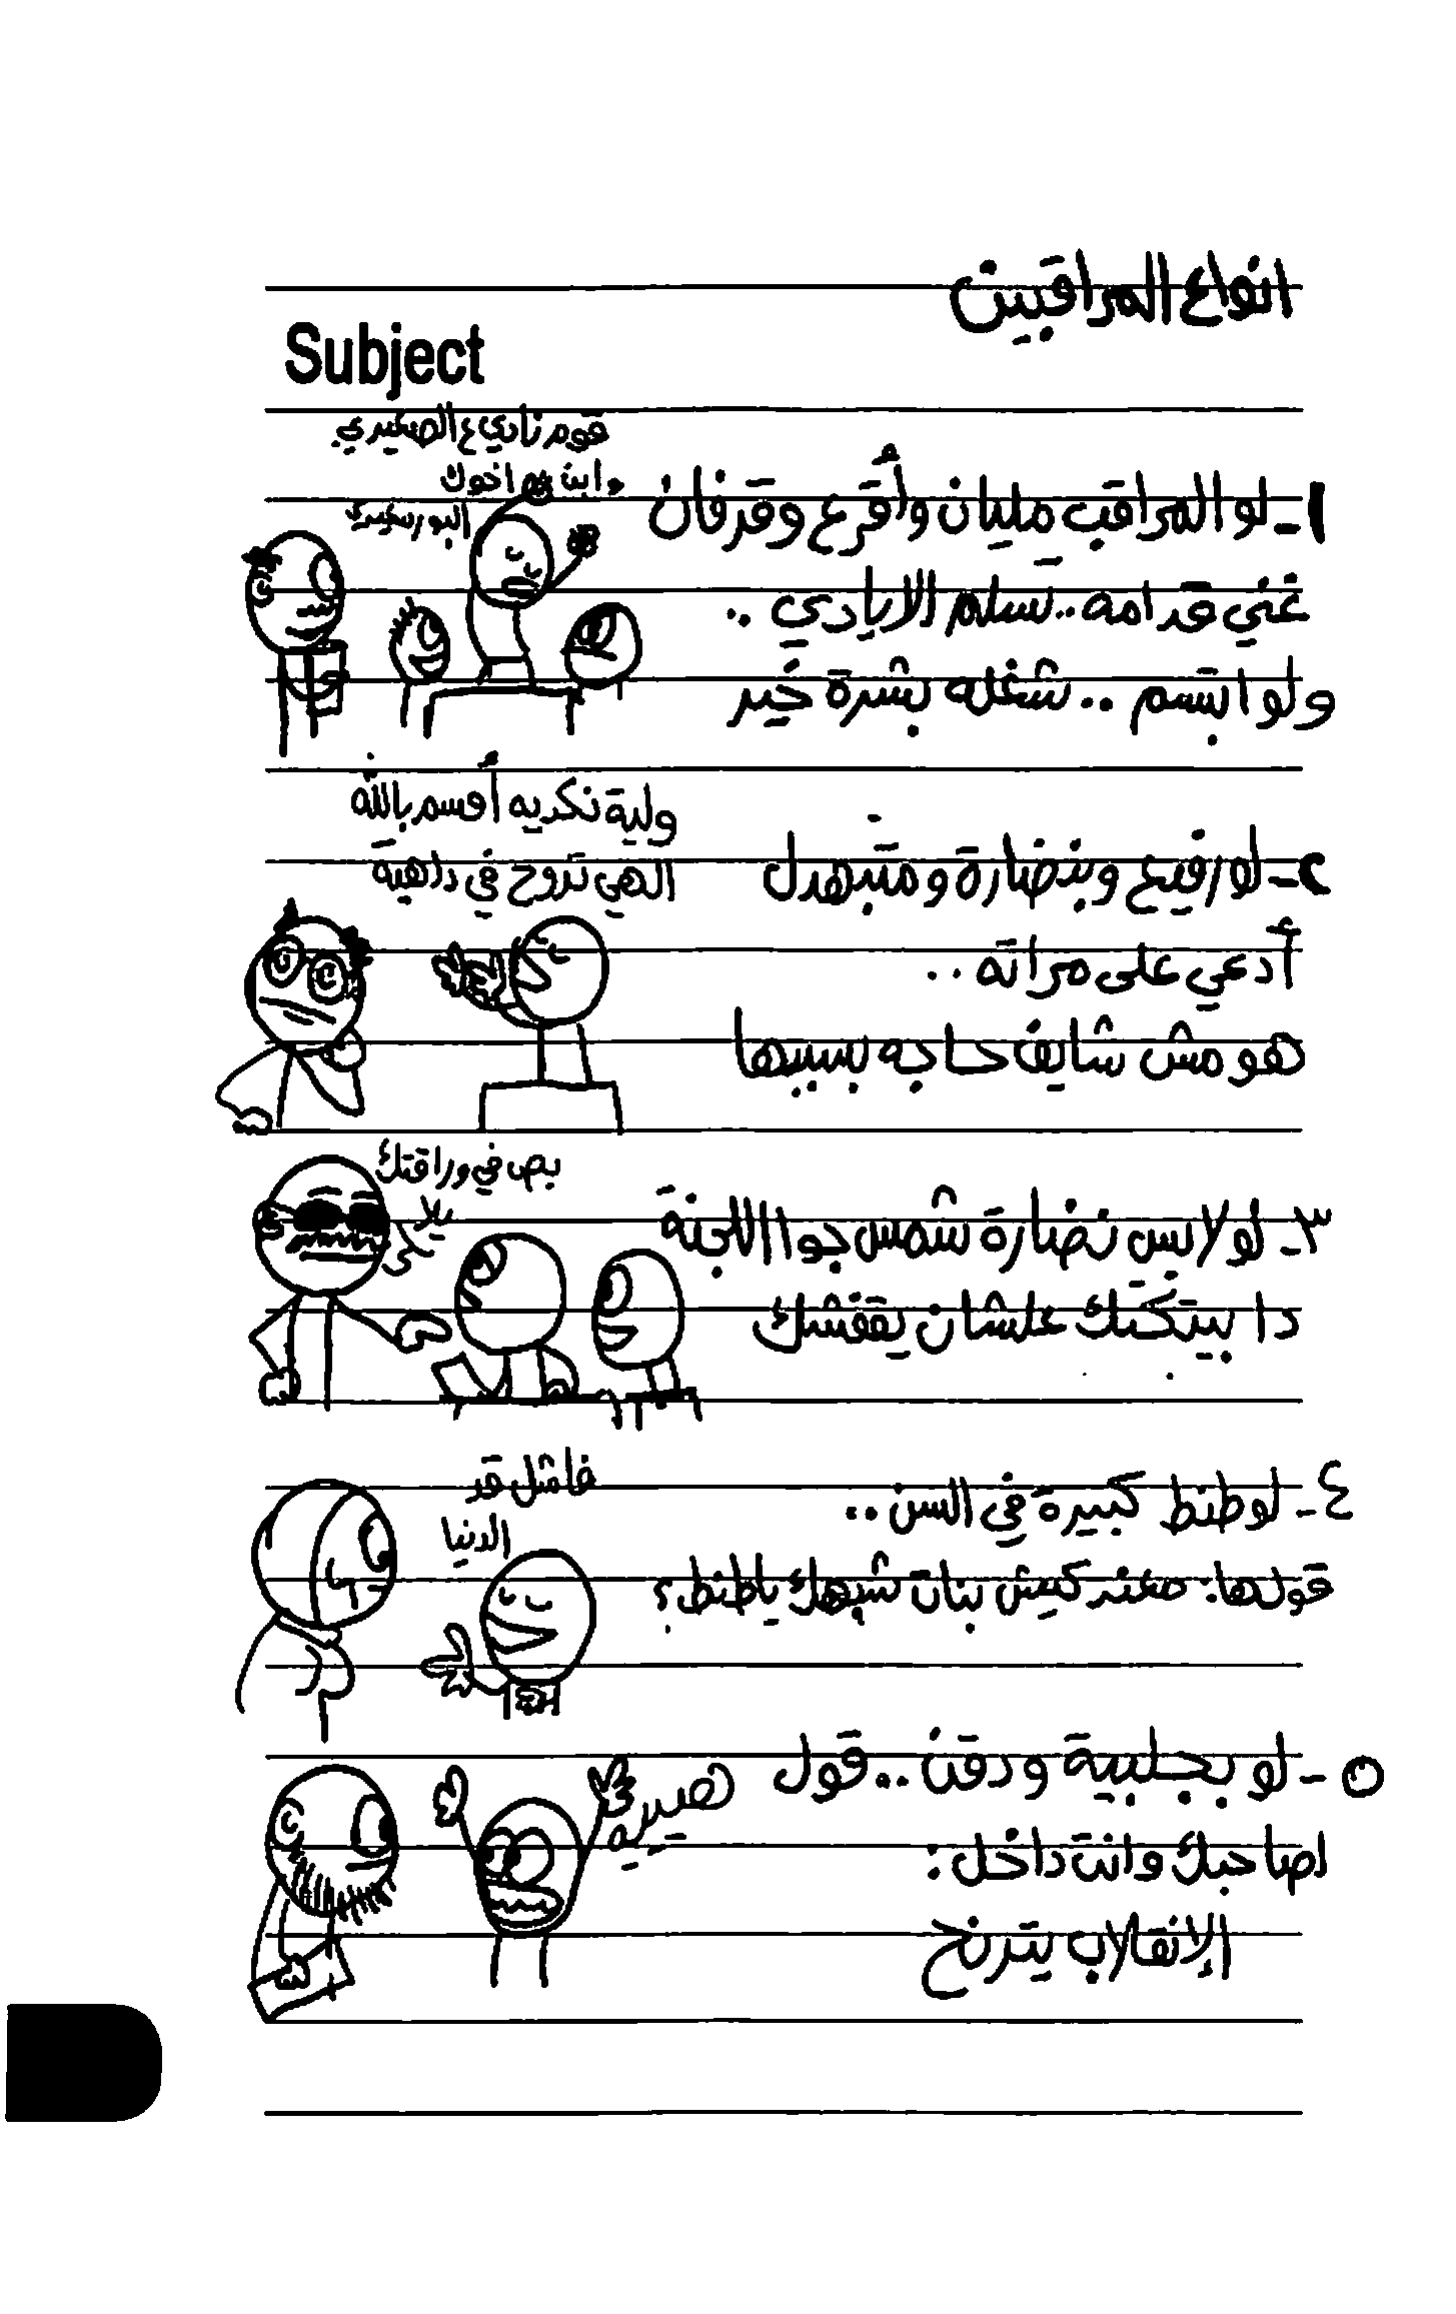 انواع المراقبين
Subject
قوم نادي ع الصعيدي
وابن اخوك
البورسعيدي
١- لو المراقب مليان وأقرع وقرفان
غني قدامه.. تسلم الايادي ..
ولو ابتسم .. شغله بشرة خير
ولية نكديه أقسم بالله
الهي تروح في داهية
٢- لو رفيع وبنضارة ومتبهدل
أدعي على مراته ..
هو مش شايف حاجه بسببها
بص في وراقتك
يلا
٣- لو لابس نضارة شمس جوا اللجنة
دا بيتكتك علشان يقفشك
فامثل قد
الدنيا
٤- لو طنط كبيرة في السن ..
قولها: معندكيش بنات شبهك يا طنط؟
٥- لو بجلبية ودقن .. قول
لصاحبك وانت داخل:
الإنقلاب يترنح
هيييه